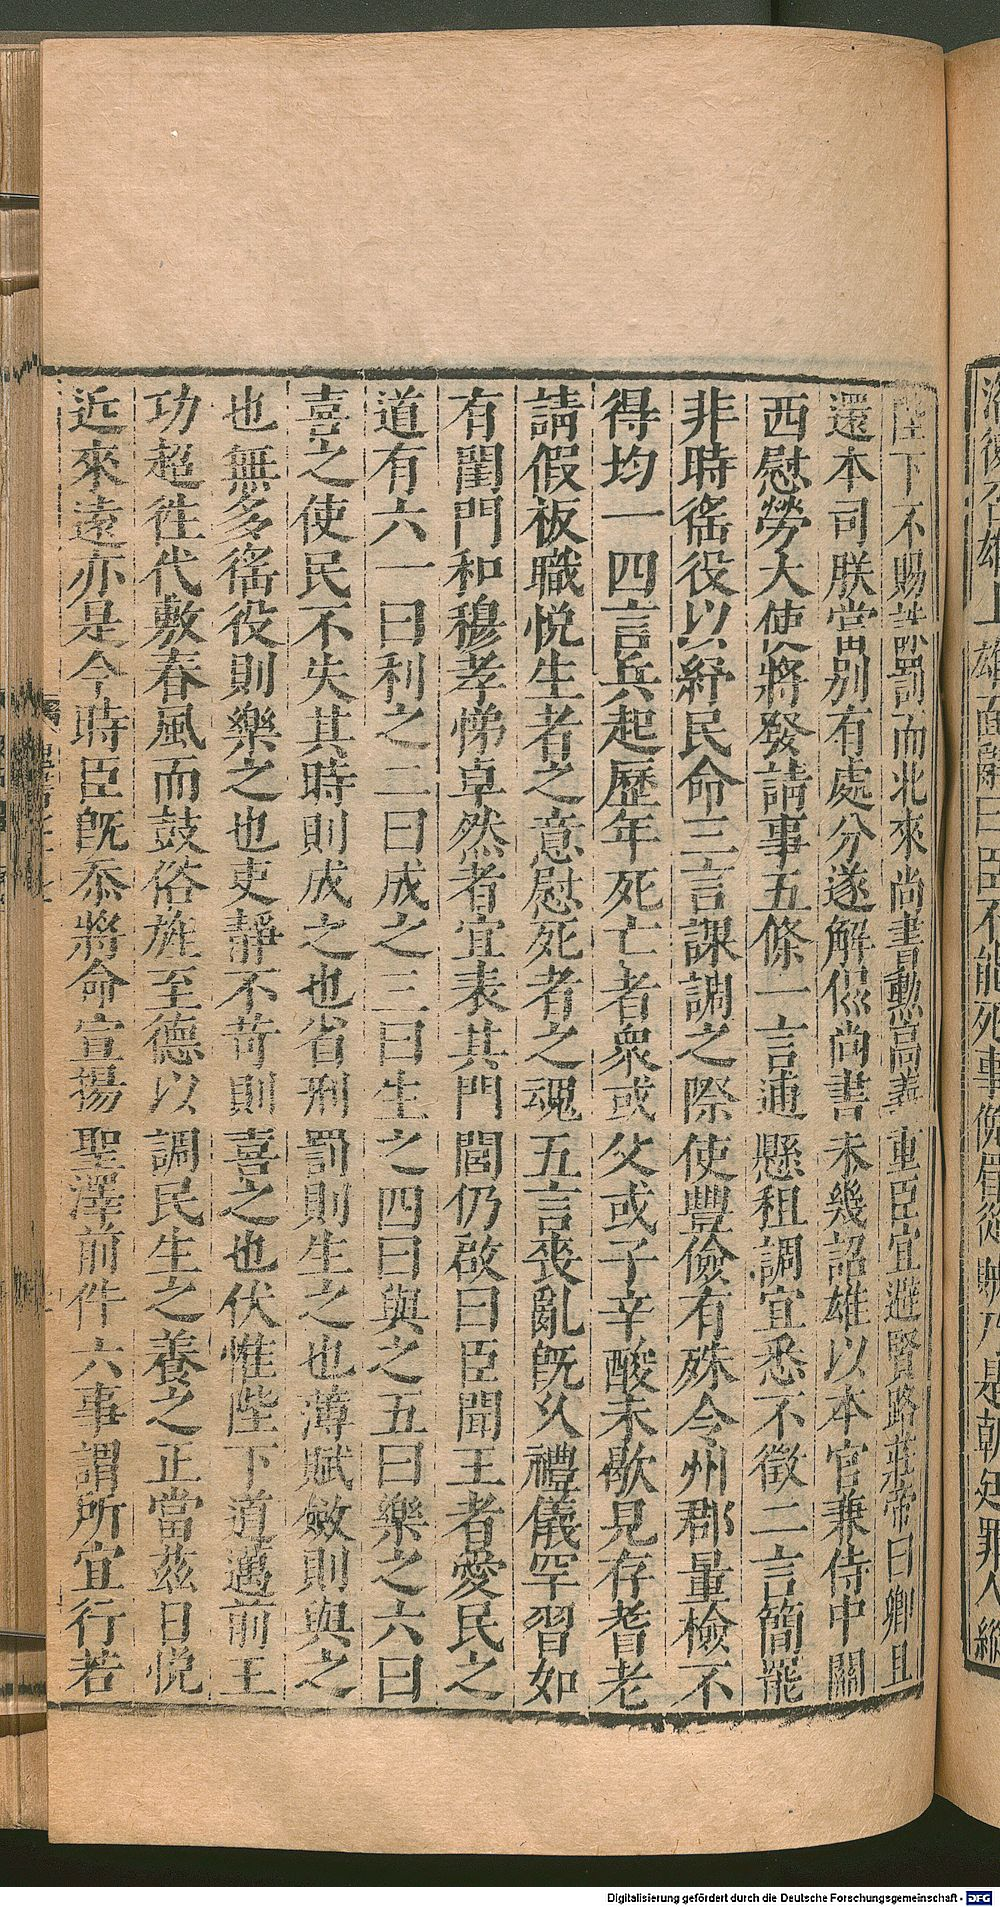 陛下不賜誅罰而北來尚書勲高義重臣宜避賢路莊帝曰卿且
還本司朕當別有處分遂解侃尚書未幾詔雄以本官兼侍中關
西慰勞大使將發請事五條一言逋懸租調宜悉不徵二言簡罷
非時徭役以紓民命三言課調之際使豐儉有殊令州郡量檢不
得均一四言兵起歷年死亡者衆或父或子辛酸未歇見存耆老
請假板職悅生者之意慰死者之魂五言喪亂旣久禮儀罕習如
有閨門和穆孝悌卓然者宜表其門閭仍啟曰臣聞王者愛民之
道有六一曰利之二曰成之三曰生之四曰與之五曰樂之六曰
喜之使民不失其時則成之也省刑罰則生之也薄賦斂則與之
也無多徭役則樂之也吏靜不苛則喜之也伏惟陛下道邁前王
功超徃代敷春風而鼓俗旌至德以調民生之養之正當茲日悅
近來遠亦是今時臣旣忝將命宣揚聖澤前件六事謂所宜行若
Digitalisierung gefördert durch die Deutsche Forschungsgemeinschaft - DFG